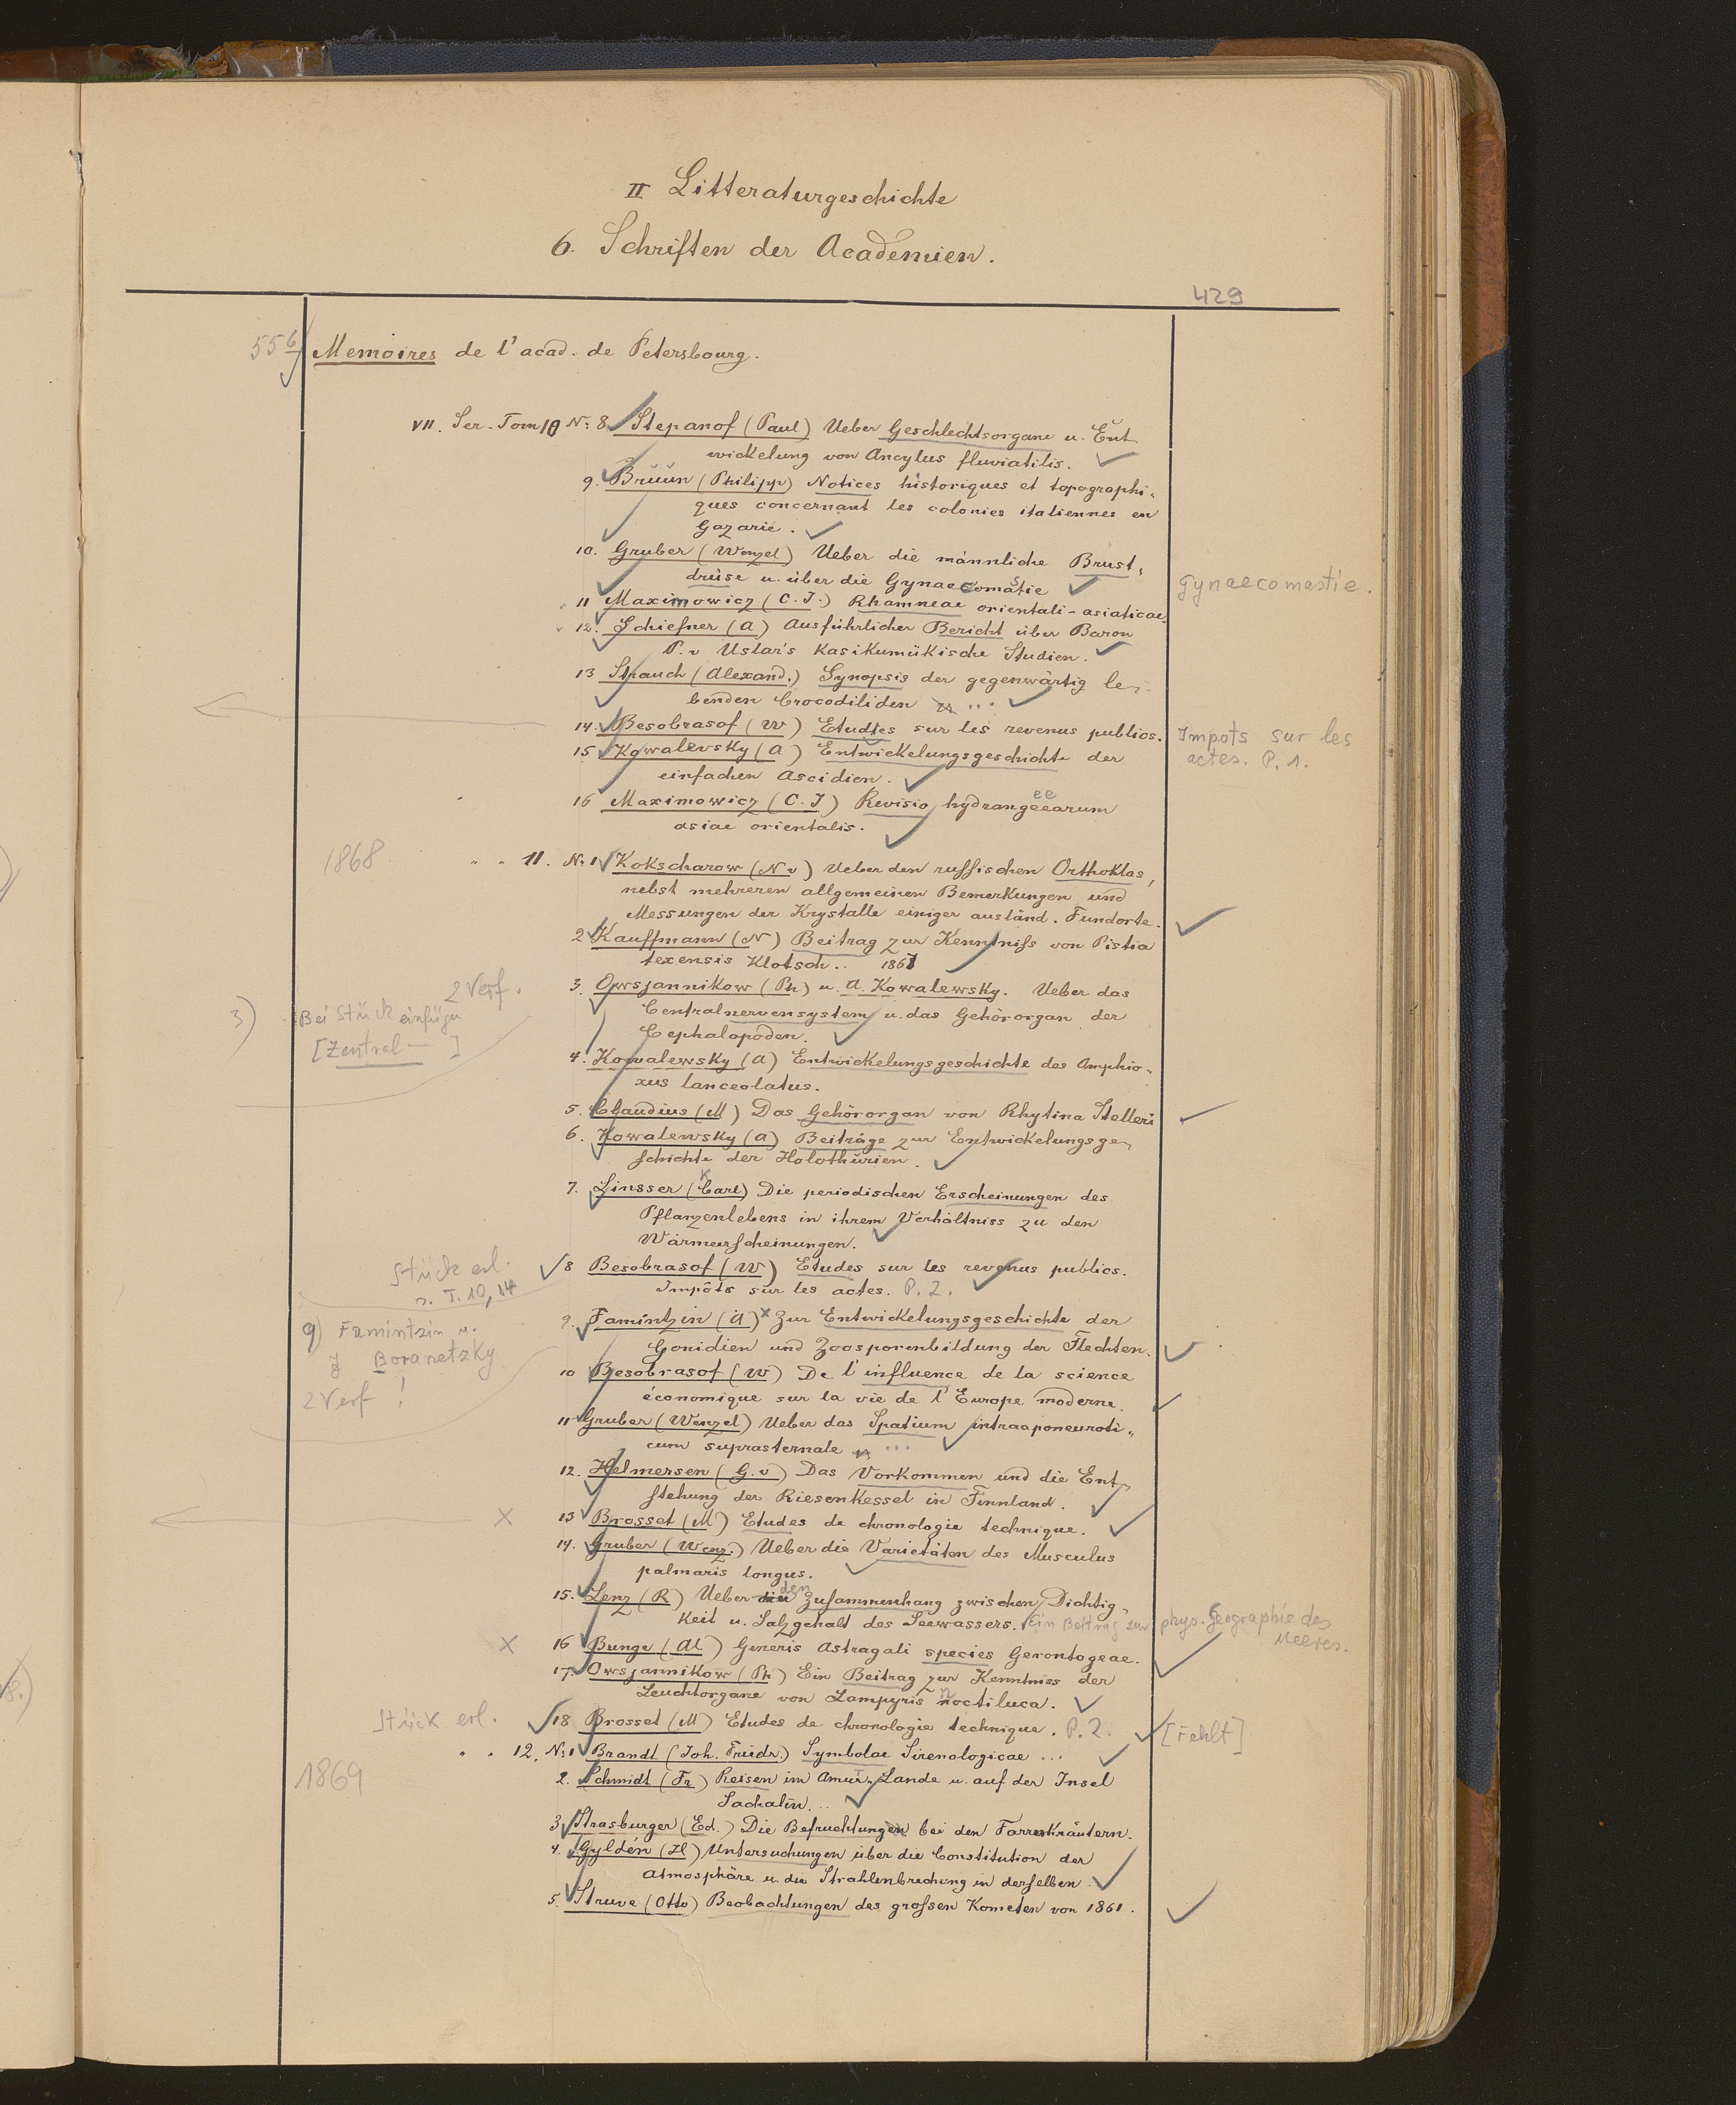 II Litteraturgeschichte
6. Schriften der Academien.
429
556 Memoires de l'acad. de Petersbourg.
VII. Ser. Tom 10 N: 8. Stepanof (Paul) Ueber Geschlechtsorgane u. Ent
wickelung von Ancylus fluviatilis.
9. Brŭŭn (Philipp) Notices historiques et topographi-
ques concernant les colonies italiennes en
Gazarie.
10. Gruber (Wenzel) Ueber die männliche Brust-
drüse u. über die Gynaecomastie
Gynaecomastie.
11 Maximowicz (C. J.) Rhamneae orientali-asiaticae.
12. Schiefner (A) Ausführlicher Bericht über Baron
P. v Uslar's Kasikumükische Studien.
13 Strauch (Alexand.) Synopsis der gegenwärtig le-
benden Crocodiliden ...
14. Besobrasof (W) Etudes sur les revenus publics.
Impots sur les
actes. P. 1.
15 Kowalevsky (A) Entwickelungsgeschichte der
einfachen Ascidien.
16 Maximowicz (C. J) Revisio hydrangeearum
ee
asiae orientalis.
1868
" " 11. N: 1 Kokscharow (N v) Ueber den russischen Orthoklas,
nebst mehreren allgemeinen Bemerkungen und
Messungen der Krystalle einiger ausländ. Fundorte.
2 Kauffmann (N) Beitrag zur Kenntniss von Pistia
texensis Klotsch.. 1867
2 Verf.
3) Bei Stück einfügen
[Zentral—]
3. Owsjannikow (Ph) u. A. Kowalewsky. Ueber das
Centralnervensystem u. das Gehörorgan der
Cephalopoden.
4. Kowalewsky (A) Entwickelungsgeschichte des Amphio-
xus lanceolatus.
5. Claudius (M) Das Gehörorgan von Rhytina Stelleri
6. Kowalewsky (A) Beiträge zur Entwickelungsge-
schichte der Holothurien.
K
7. Linsser (Carl) Die periodischen Erscheinungen des
Pflanzenlebens in ihrem Verhältniss zu den
Wärmerscheinungen.
Stück erl.
s. T. 10, 14
8 Besobrasof (W) Etudes sur les revenus publics.
Impôts sur les actes. P. 2.
9) Famintzin u.
J Boranetzky
2 Verf !
9. Famintzin (A) x Zur Entwickelungsgeschichte der
Gonidien und Zoosporenbildung der Flechten.
10 Besobrasof (W) De l'influence de la science
économique sur la vie de l'Europe moderne.
11 Gruber (Wenzel) Ueber das Spatium intraaponeuroti-
cum suprasternale ...
12. Helmersen (G. v) Das Vorkommen und die Ent-
stehung der Riesenkessel in Finnland.
x 13 Brosset (M) Etudes de chronologie technique.
14. Gruber (Wenz.) Ueber die Varietäten des Musculus
palmaris longus.
15. Lenz (R) Ueber den Zusammenhang zwischen Dichtig-
keit u. Salzgehalt des Seewassers. Ein Beitrag zur phys. Geographie des
Meeres.
x 16 Bunge (Al) Generis Astragali species Gerontogeae.
17. Owsjannikow (Ph) Ein Beitrag zur Kenntniss der
Leuchtorgane von Lampyris noctiluca.
Stück erl.
18 Brosset (M) Etudes de chronologie technique. P. 2. [fehlt]
1869
" " 12. N: 1 Brandt (Joh. Friedr.) Symbolae Sirenologicae ...
2. Schmidt (Fr) Reisen im Amur-Lande u. auf der Insel
Sachalin...
3 Strasburger (Ed.) Die Befruchtung bei den Farrnkräutern.
4. Gyldén (H) Untersuchungen über die Constitution der
Atmosphäre u. die Strahlenbrechung in derselben.
5. Struve (Otto) Beobachtungen des grossen Kometen von 1861.